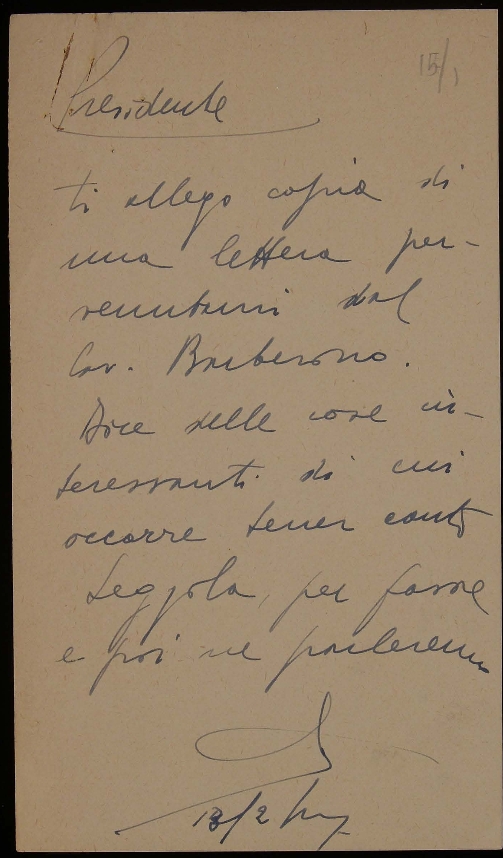 15/1
Presidente
ti allego copia di
una lettera per-
venutami dal
Cav. Barberino.
Dice delle cose in-
teressanti di cui
occorre tener conto
Leggila, per favore
e poi ne parleremo
13/2